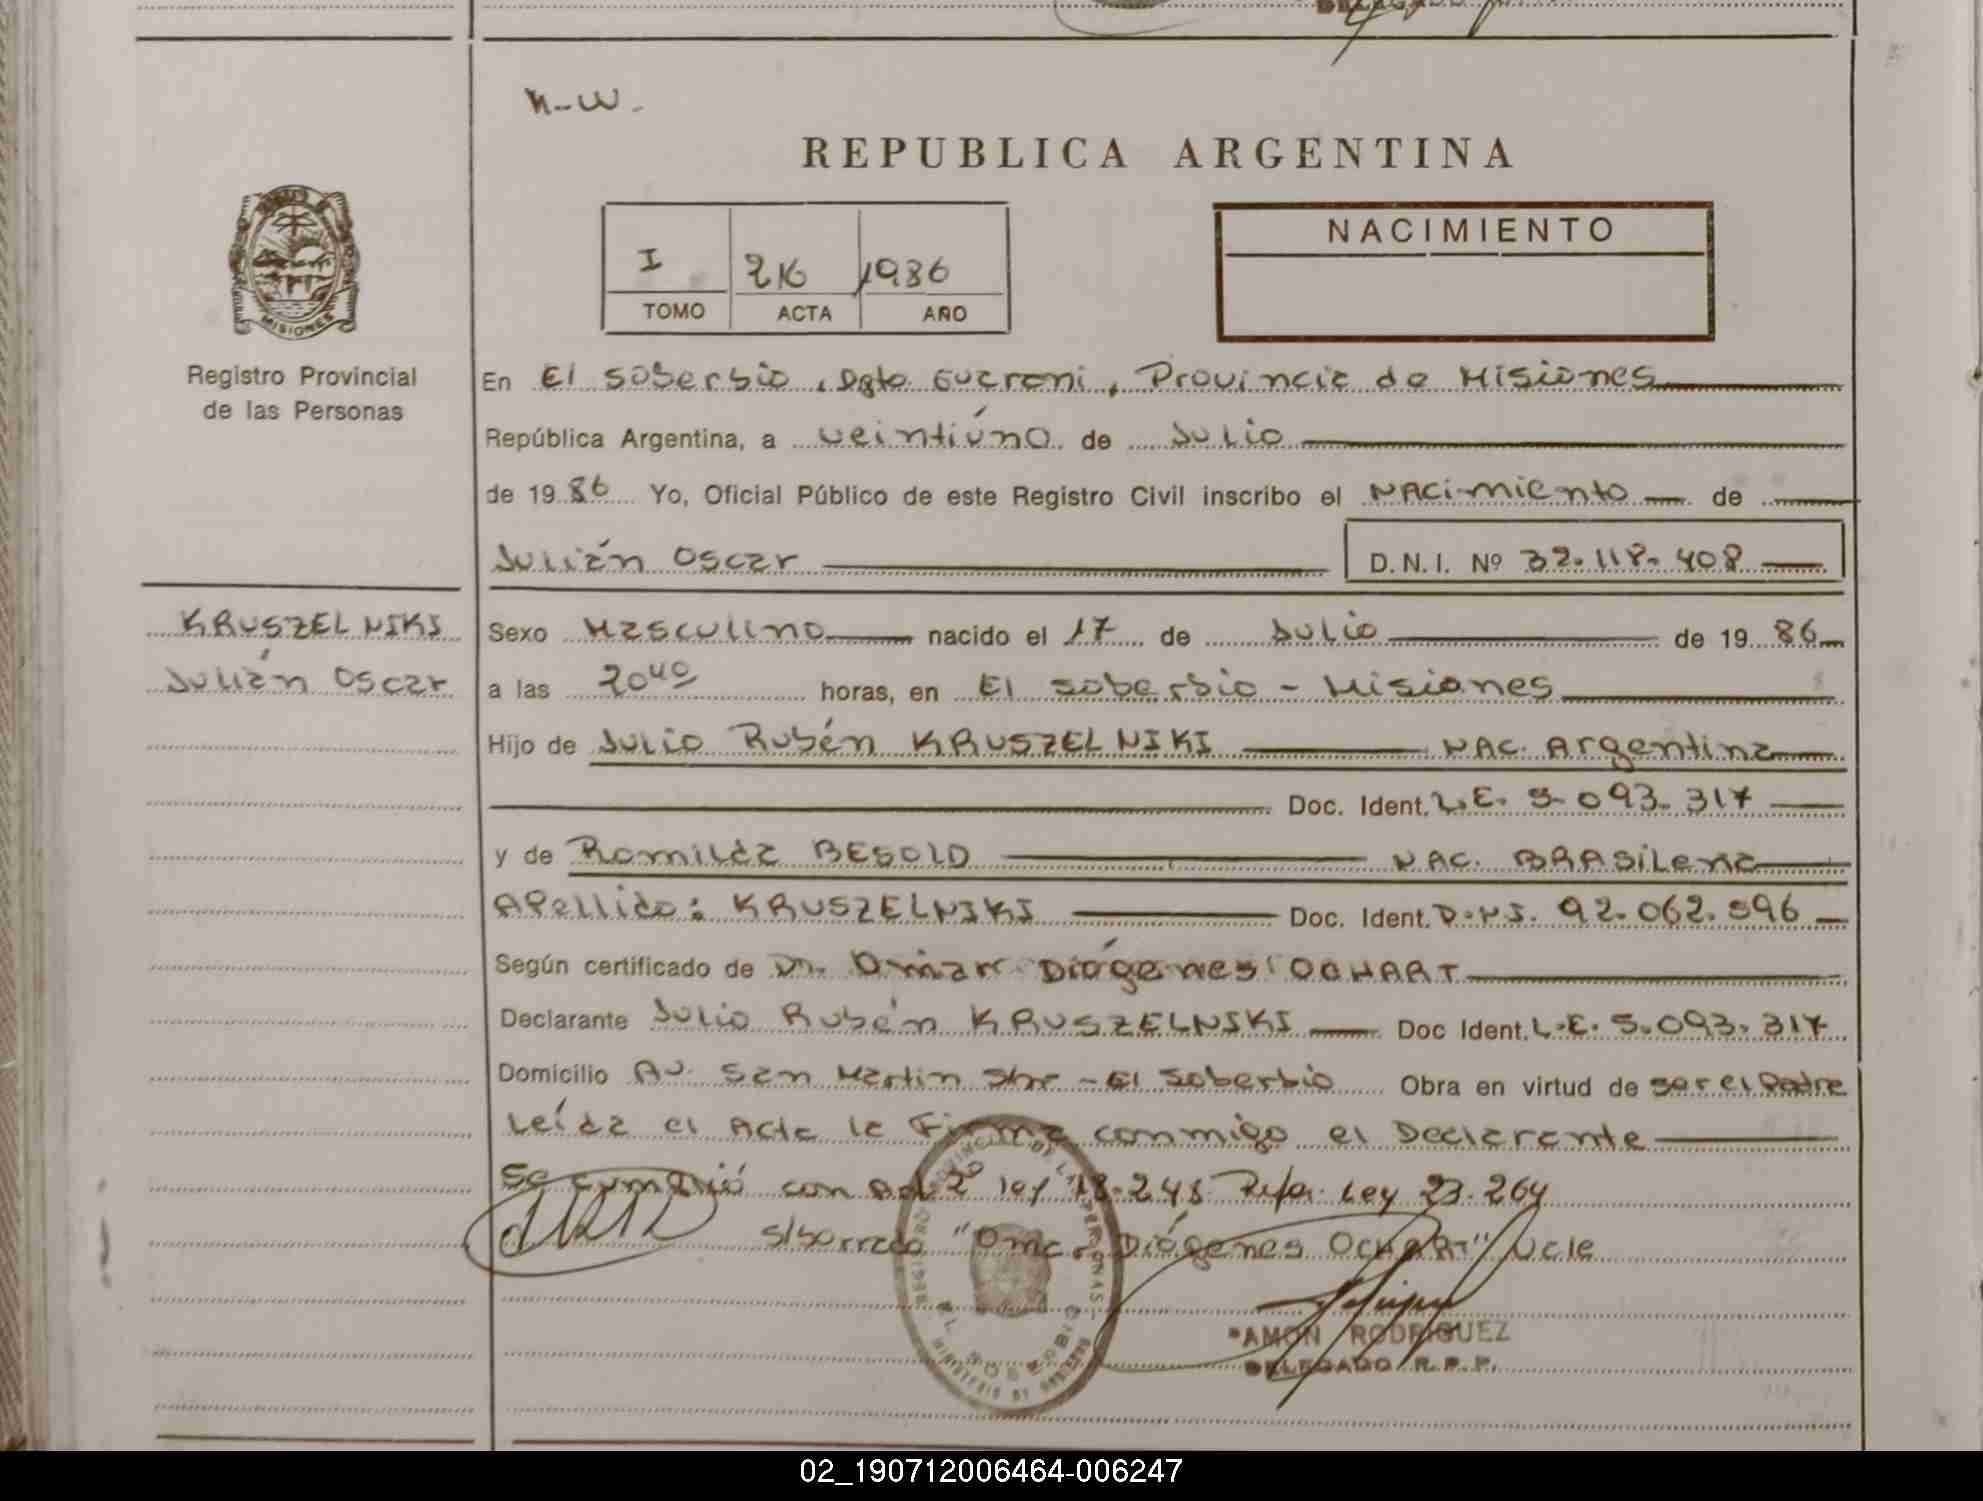 DELEGADO
N-W.
REPUBLICA ARGENTINA
I 216 1986
TOMO ACTA AÑO
NACIMIENTO
MISIONES
Registro Provincial
de las Personas
En El Soberbio, Dpto Guarani, Provincia de Misiones
República Argentina, a veintiúno de Julio
de 1986 Yo, Oficial Público de este Registro Civil inscribo el NACimiento de
Julián Oscar D.N.I. Nº 32.118.408
KRUSZELNIKI
Julián Oscar
Sexo Masculino nacido el 17 de Julio de 1986
a las 20⁴⁰ horas, en El Soberbio - Misiones
Hijo de Julio Rubén KRUSZELNIKI NAC. Argentina
Doc. Ident. L.E. 5.093.317
y de Romilda BESOLD NAC. BRASilena
APellido: KRUSZELNIKI Doc. Ident. D.N.I. 92.062.596
Según certificado de Dr. Omar Diógenes OCHART
Declarante Julio Rubén KRUSZELNIKI Doc Ident. L.E. 5.093.317
Domicilio Av. San Martin S/nr - El Soberbio Obra en virtud de ser el Padre
Leída el Acta la Firma conmigo el Declarante
Se cumplió con Art 2º ley 18.248 Refor. Ley 23.264
S/borrado "Omar Diógenes OCHART" Vale
REGISTRO PROVINCIAL DE LAS PERSONAS
EL SOBERBIO
MINISTERIO DE GOBIERNO
RAMON RODRIGUEZ
DELEGADO R.P.P.
02_190712006464-006247